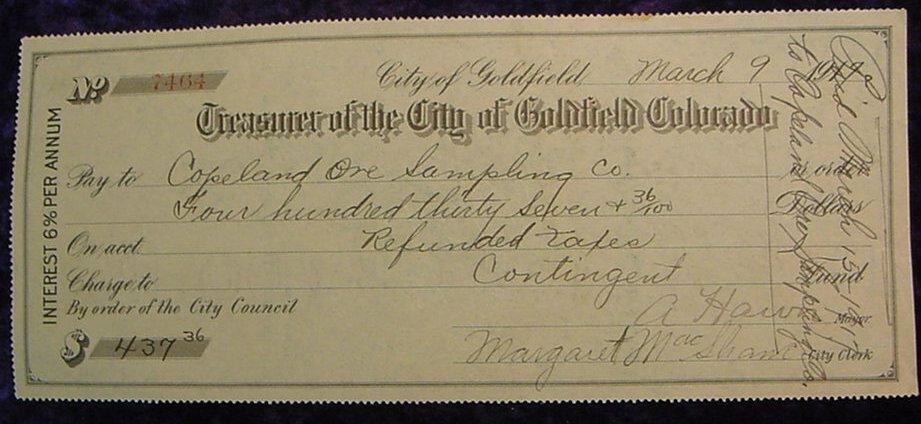 INTEREST 6% PER ANNUM
No 7464
City of Goldfield, March 9
Treasurer of the City of Goldfield Colorado
Pay to Copeland Ore Sampling Co. or order
Four hundred thirty seven + 36/100 Dollars
On acct. Refunded Taxes
Charge to Contingent Fund
By order of the City Council
A Mayor
$ 437 36 Margaret City Clerk
Pa'd March 15 1917
to Copeland Ore Sampling Co.